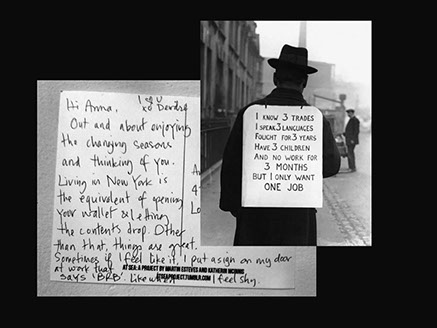 Hi Anna,
Out and about enjoying
the changing seasons
and thinking of you.
Living in New York is
the equivalent of opening
your wallet & letting
the contents drop. Other
than that, things are great.
Sometimes if I feel like it, I put a sign on my door
at work that
says 'BRB'. Like when I feel shy.
AT SEA: A PROJECT BY MARTIN ESTEVES AND KATHERIN MCINNIS
ATSEAPROJECT.TUMBLR.COM
I KNOW 3 TRADES
I SPEAK 3 LANGUAGES
FOUGHT FOR 3 YEARS
HAVE 3 CHILDREN
AND NO WORK FOR
3 MONTHS
BUT I ONLY WANT
ONE JOB